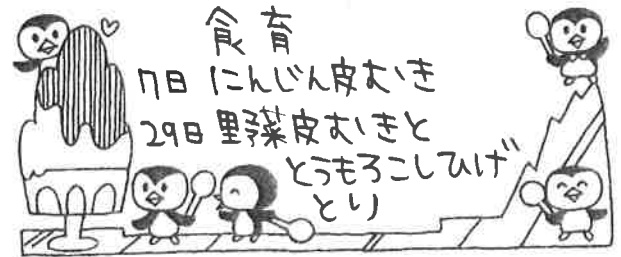 食育
7日 にんじん皮むき
29日 野菜皮むきと
とうもろこしひげ
とり